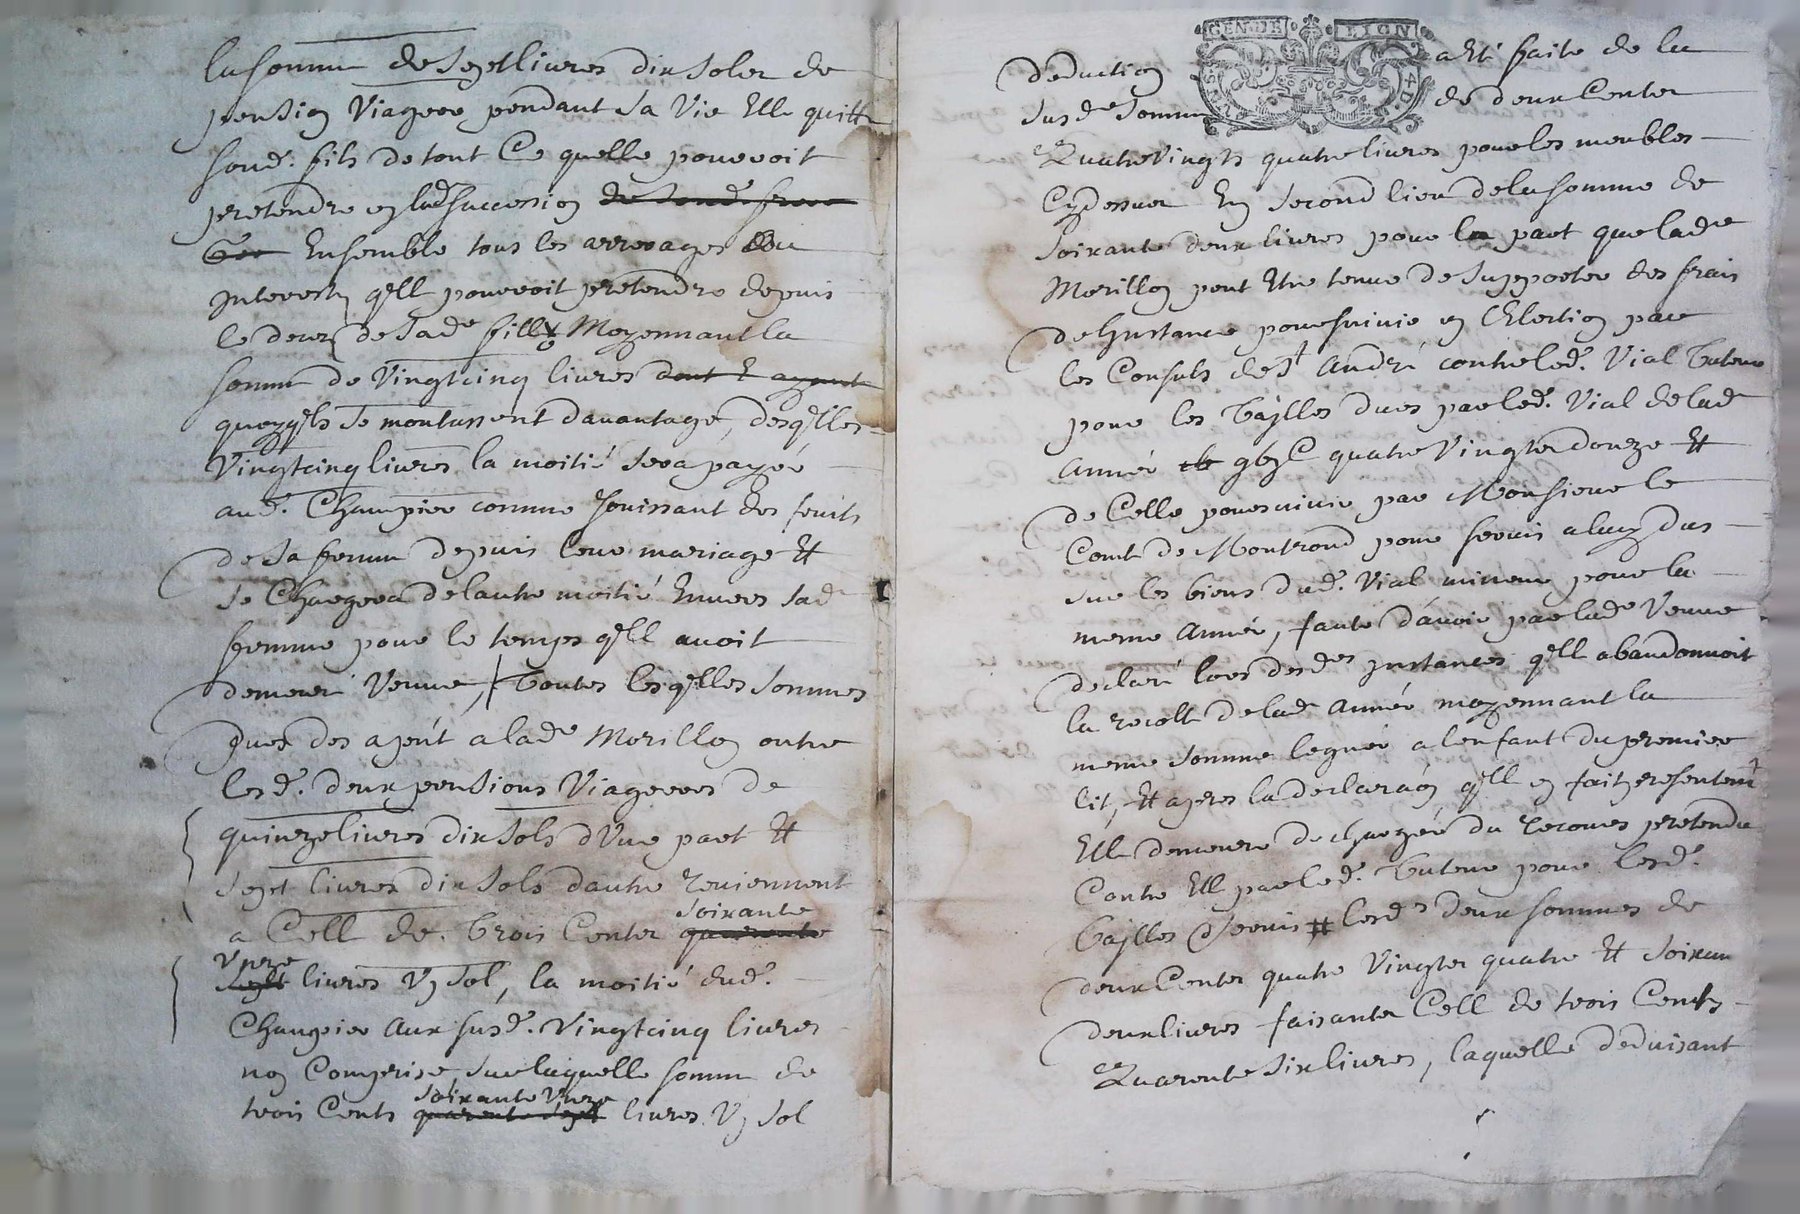 la somme de sept livres dix solz de
pension viagere pendant sa vie Elle quitte
sond. fils de tout Ce quelle pouvoit
pretendre en lad succession de sond. frere
Ensemble tous les arrerages
Interestz q'll pouvoit pretendre depuis
le decez de sade fille Moyennant la
somme de vingtcinq livres
quoyq'ls se montassent davantage, desq'lles
vingtcinq livres la moitié sera payée
aud. Champier comme Jouissant des fruits
de sa femme depuis leur mariage Et
se Chargera de lautre moitié Envers sad
femme pour le temps q'll avoit
demeuré veuve, Toutes lesq'lles sommes
a lade Morillon outre
lesd. deux pensions viageres de
quinze livres dix sols d'Une part Et
sept livres dix sols dautre reviennent
a Cell de Trois Centz soixante quarante
Unze sept livres Un sol, la moitié dud.
Champier aux susd. vingtcinq livres
non Comprise sur laquelle somme de
trois Cents soixante Unze quarante sept livres Un sol
GENDE LION
deduction a Eté faite de la
susde somme de deux Centz
Quatrevingts quatre livres pour les meubles
Cydessus En second lieu de la somme de
soixante deux livres pour la part que lade
Morillon peut Etre tenue de supporter des frais
de Linstance poursuivie en l'Election par
les Consuls de St André contre led. Vial Tuteur
pour les Tajlles dues par led. Vial de lad
année gbjC quatre vingtz douze Et
de Celle poursuivie par Monsieur le
Comt de Montrond pour servis a luy dus
sur les biens dud. Vial mineur pour la
meme année, faute d'avoir par lade veuve
declaré lors desdes Instances q'll abandonnoit
la recolte de lade année moyennant la
meme somme leguée a lenfant du premier
lit, Et apres la declaraon q'll en fait presentemt
Elle demeure dechargée du recours pretendu
Contre Ell par led. Tuteur pour lesd.
Tajlles & servis # lesd. deux sommes de
deux Centz quatre vingtz quatre Et soixan
deux livres faisantz Cell de trois Cents
Quarente six livres, laquelle deduisant